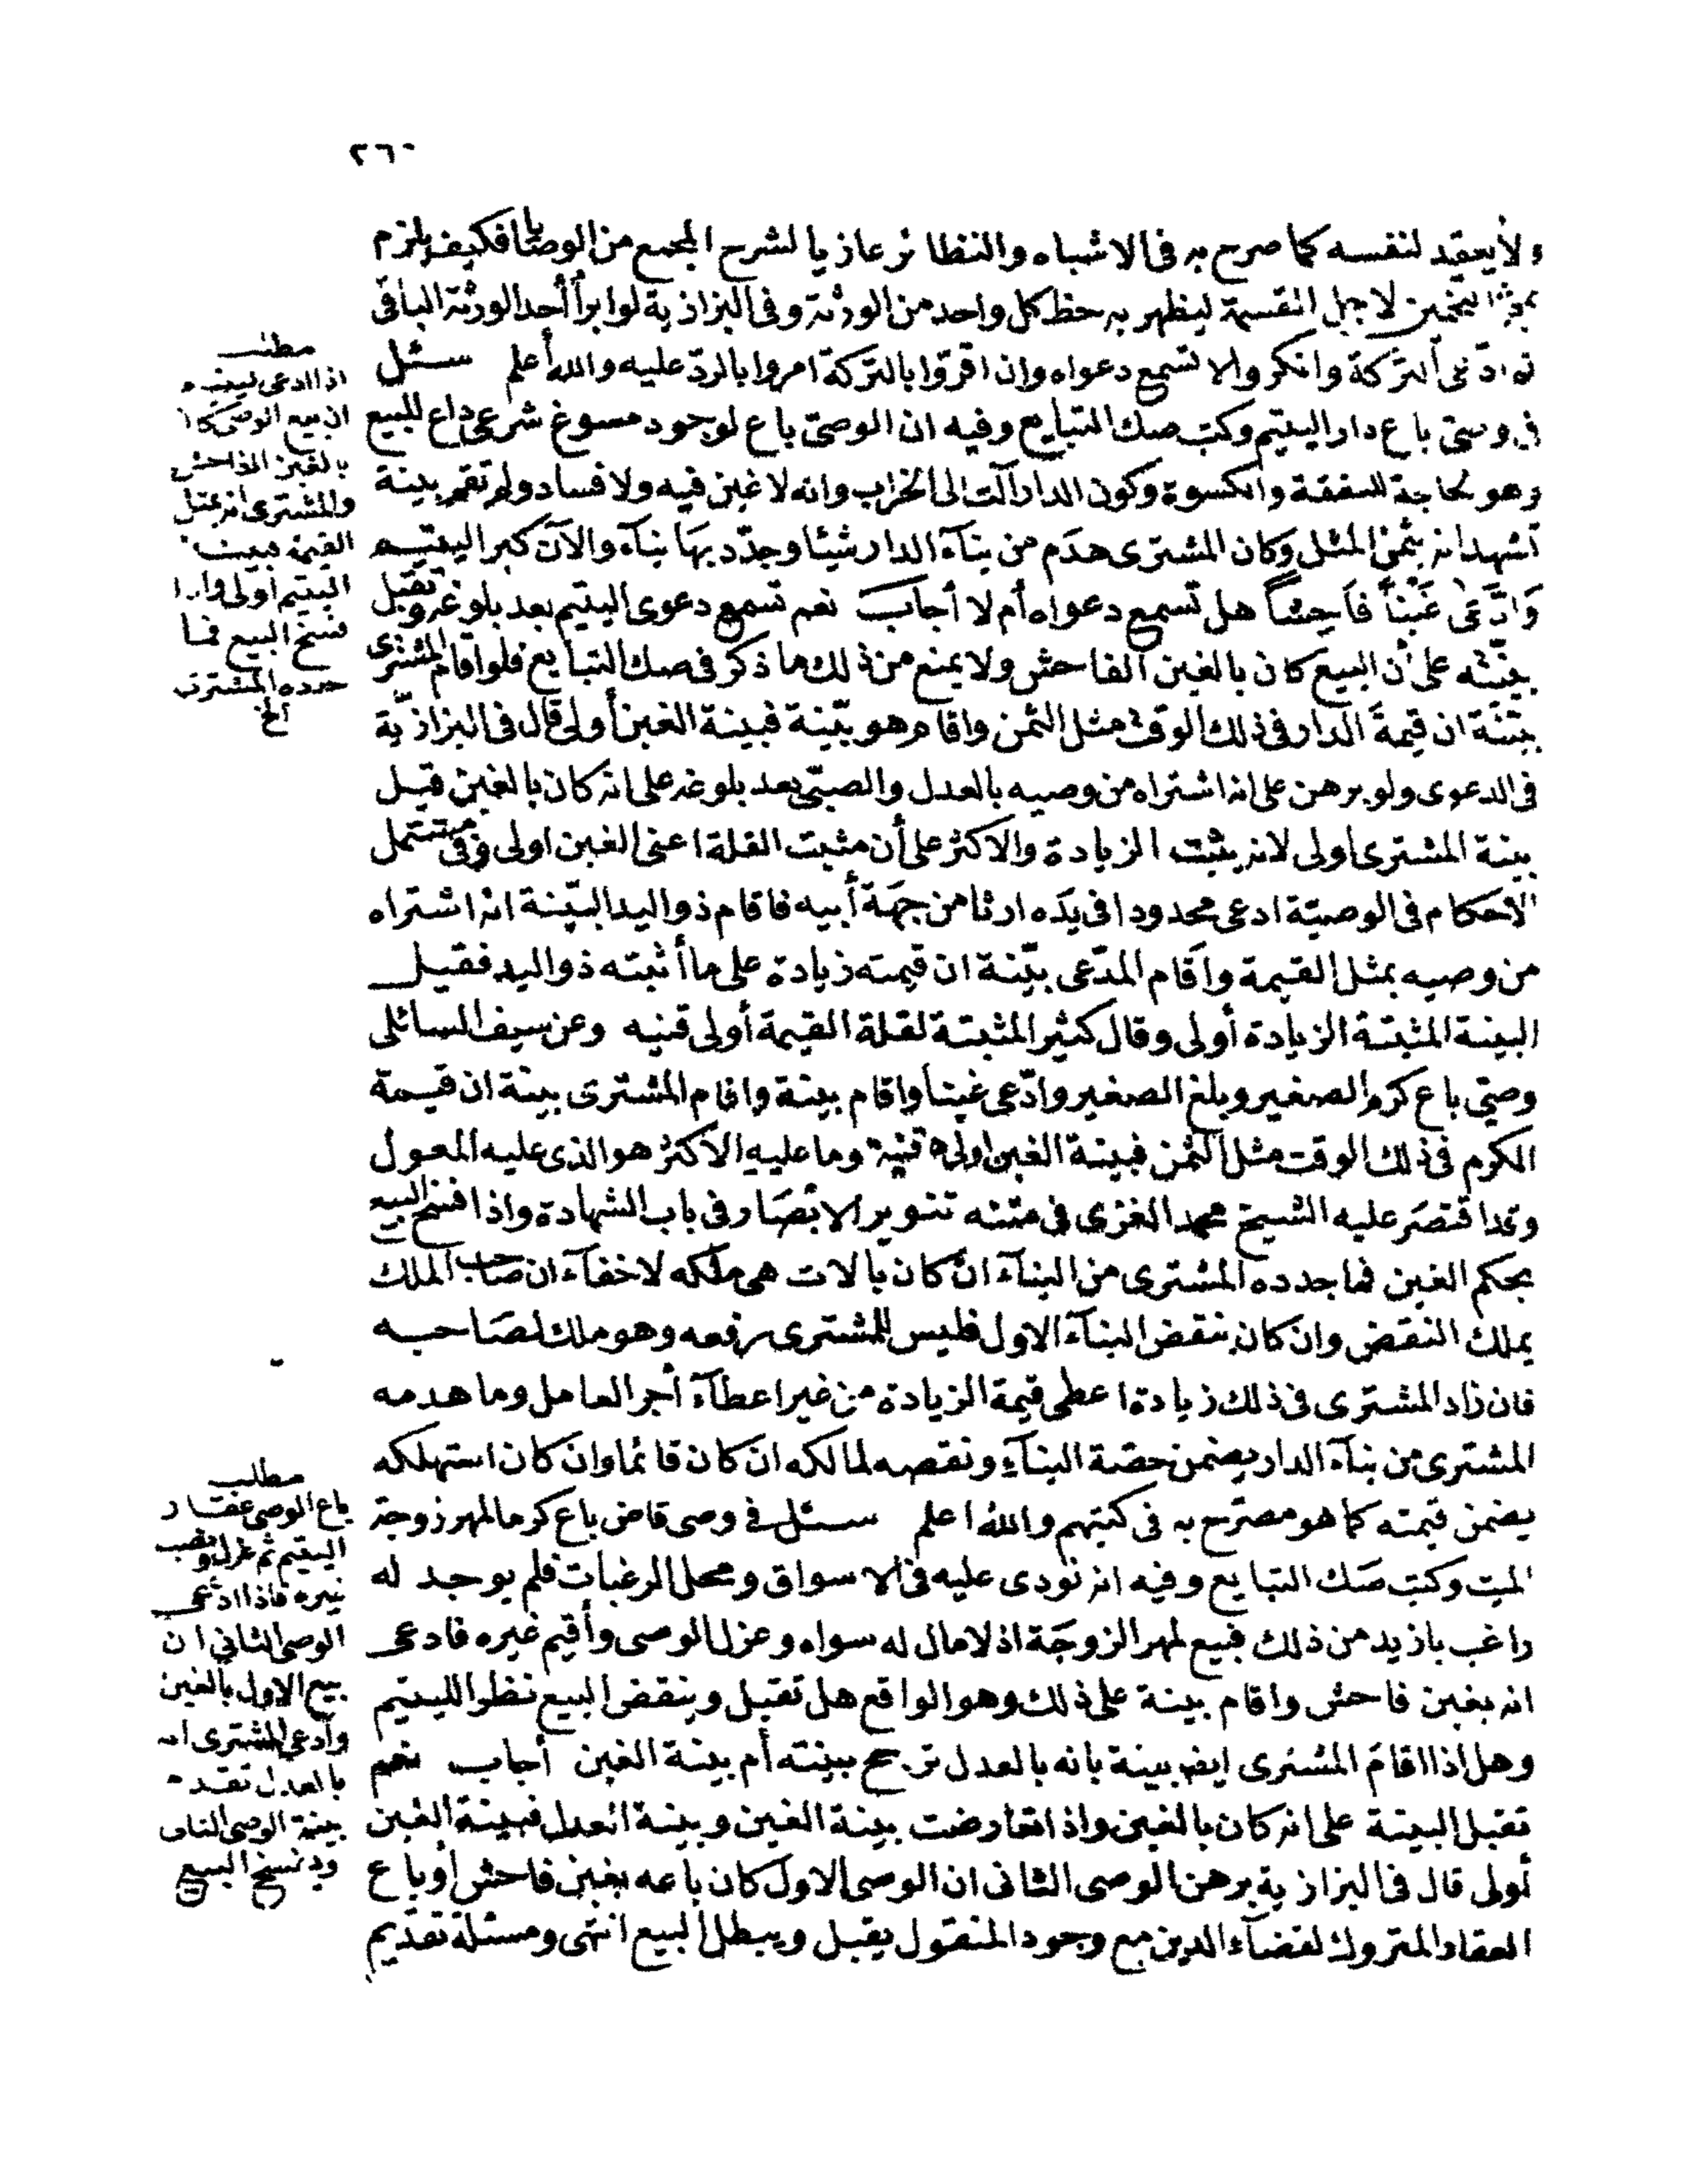 ٢٦٠
ولا يعقد لنفسه كما صرح به فى الاشباه والنظائر عازيا لشرح المجمع من الوصايا فكيف يلزم
التخمين لاجل القسمة ليظهر به حظ كل واحد من الورثة وفى البزازية لو ابرأ أحد الورثة الباقى
ادعى التركة وانكروا لا تسمع دعواه وان اقروا بالتركة امروا بالردّ عليه والله أعلم سئل
فى وصى باع دار اليتيم وكتب صك التبايع وفيه ان الوصىّ باع لوجود مسوغ شرعى داع للبيع
وهو لحاجة النفقة والكسوة وكون الدار آلت الى الخراب وانه لا غبن فيه ولا فساد ولم تقم بينة
تشهد انه بثمن المثل وكان المشترى هدم من بنآء الدار شيئا وجدّد بها بنآء والآن كبر اليتيم
وَادَّعَى غَبْناً فَاحِشاً هل تسمع دعواه أم لا أجاب نعم تسمع دعوى اليتيم بعد بلوغه وتقبل
بيّنته على أن البيع كان بالغبن الفاحش ولا يمنع من ذلك ما ذكر فى صك التبايع فلو اقام المشترى
بيّنة ان قيمة الدار فى ذلك الوقت مثل الثمن واقام هو بيّنة فبينة الغبن أولى قال فى البزازيّة
فى الدعوى ولو برهن على انه اشتراه من وصيه بالعدل والصبىّ بعد بلوغه على انه كان بالغبن قيل
بينة المشترى اولى لانه يثبت الزيادة والاكثر على أن مثبت القلة اعنى الغبن اولى وفى مشتمل
الاحكام فى الوصيّة ادعى محدودا فى يده ارثا من جهة أبيه فاقام ذو اليد البيّنة انه اشتراه
من وصيه بمثل القيمة واقام المدّعى بيّنة ان قيمته زيادة على ما أثبته ذو اليد فقيل
البينة المثبتة الزيادة أولى وقال كثير المثبتة لقلة القيمة أولى قنيه وعن سيف السائلى
وصىّ باع كرم الصغير وبلغ الصغير وادّعى غبنا واقام بينة واقام المشترى بينة ان قيمة
الكرم فى ذلك الوقت مثل الثمن فبينة الغبن اولى قنيه وما عليه الاكثر هو الذى عليه المعول
وقد اقتصر عليه الشيخ محمد الغزى فى متنه تنوير الابصار فى باب الشهادة واذا فسخ البيع
بحكم الغبن فما جدده المشترى من البنآء ان كان بالات هى ملكه لا خفآء ان صاحب الملك
يملك النقض وان كان بنقض البنآء الاول فليس للمشترى رفعه وهو ملك لصاحبه
فان زاد المشترى فى ذلك زيادة اعطى قيمة الزيادة من غير اعطآء أجر العامل وما هدمه
المشترى من بنآء الدار يضمن حصة البنآء ونقصه لمالكه ان كان قائما وان كان استهلكه
يضمن قيمته كما هو مصرّح به فى كتبهم والله اعلم سئل فى وصى قاض باع كرما لمهر زوجة
الميت وكتب صك التبايع وفيه انه نودى عليه فى الاسواق ومحل الرغبات فلم يوجد له
راغب بازيد من ذلك فبيع لمهر الزوجة اذ لا مال له سواه وعزل الوصى وأقيم غيره فادعى
انه بغبن فاحش واقام بينة على ذلك وهو الواقع هل تقبل وينقض البيع نظرا لليتيم
وهل اذا اقام المشترى ايضا بينة بانه بالعدل ترجح بينته أم بينة الغبن أجاب نعم
تقبل البينة على انه كان بالغبن واذا تعارضت بينة الغبن وبينة العدل فبينة الغبن
أولى قال فى البزازية برهن الوصى الثانى ان الوصى الاول كان باعه بغبن فاحش أو باع
العقار المتروك لقضآء الدين مع وجود المنقول يقبل ويبطل البيع انتهى ومسئلة تقديم
مطلب
اذا ادعى اليتيم
ان بيع الوصى كان
بالغبن الفاحش
والمشترى انه بمثل
القيمة فبينة
اليتيم اولى واذا
فسخ البيع فما
جدده المشترى
الخ
مطلب
باع الوصى عقار
اليتيم ثم عزل ونصب
غيره فاذا ادعى
الوصى الثانى ان
بيع الاول بالغبن
وادعى المشترى انه
بالعدل تقدم
بينة الوصى الثانى
ويفسخ البيع